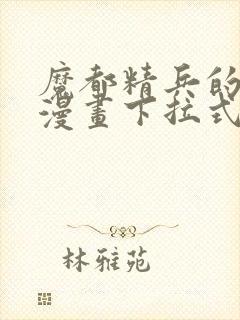 魔都精兵的
漫畫下拉式
林雅苑